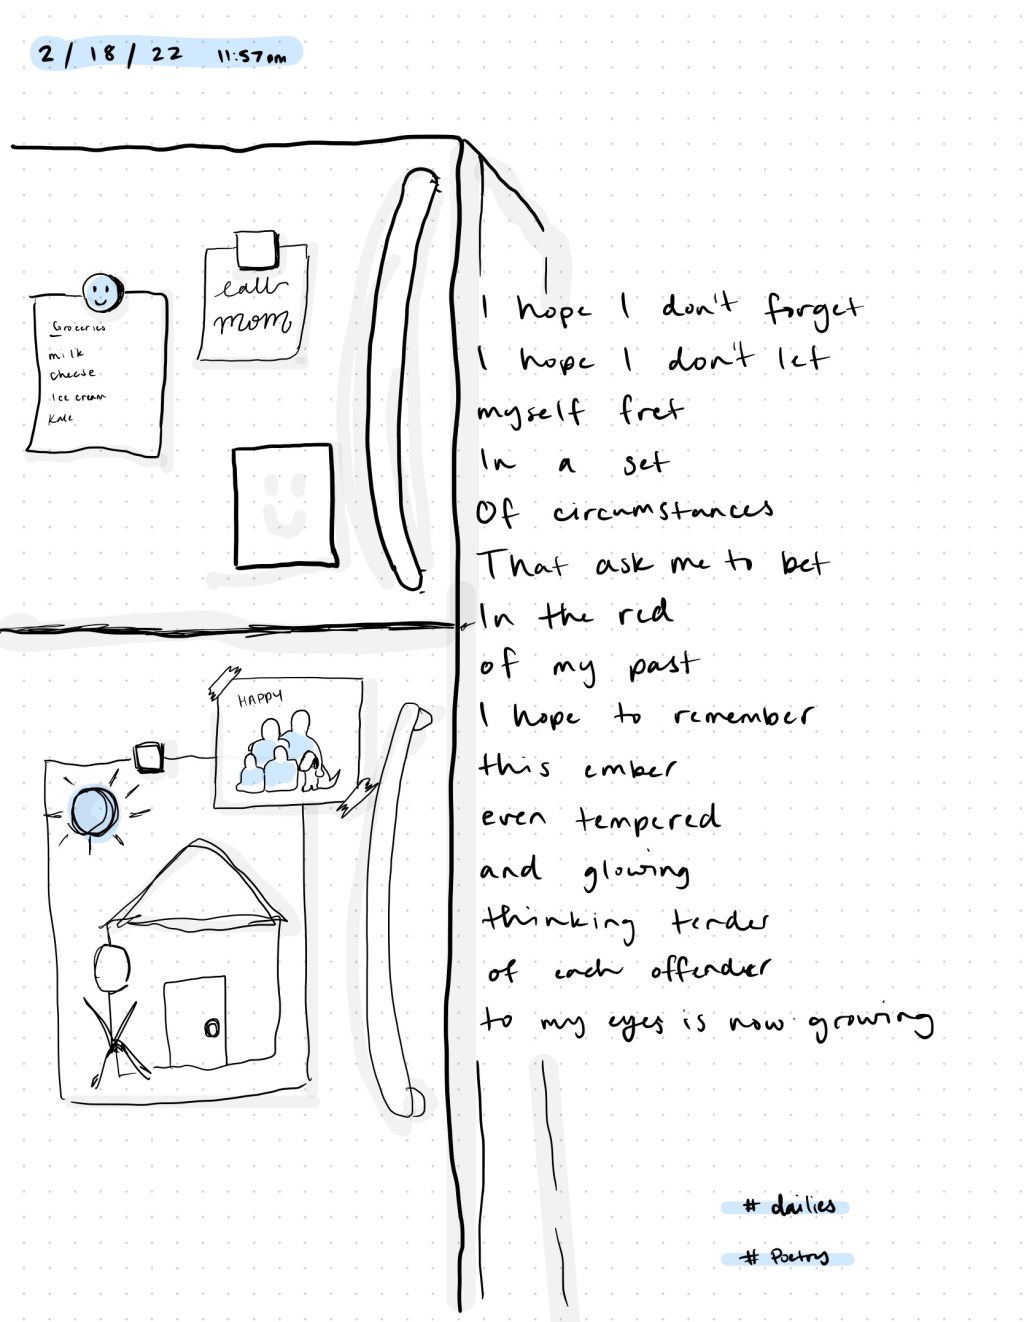 2/18/22 11:57pm
call
mom
Groceries
milk
cheese
Ice cream
Kale
I hope I don't forget
I hope I don't let
myself fret
In a set
Of circumstances
That ask me to bet
In the red
of my past
I hope to remember
this ember
even tempered
and glowing
thinking tender
of each offender
to my eyes is now growing
HAPPY
# dailies
# Poetry